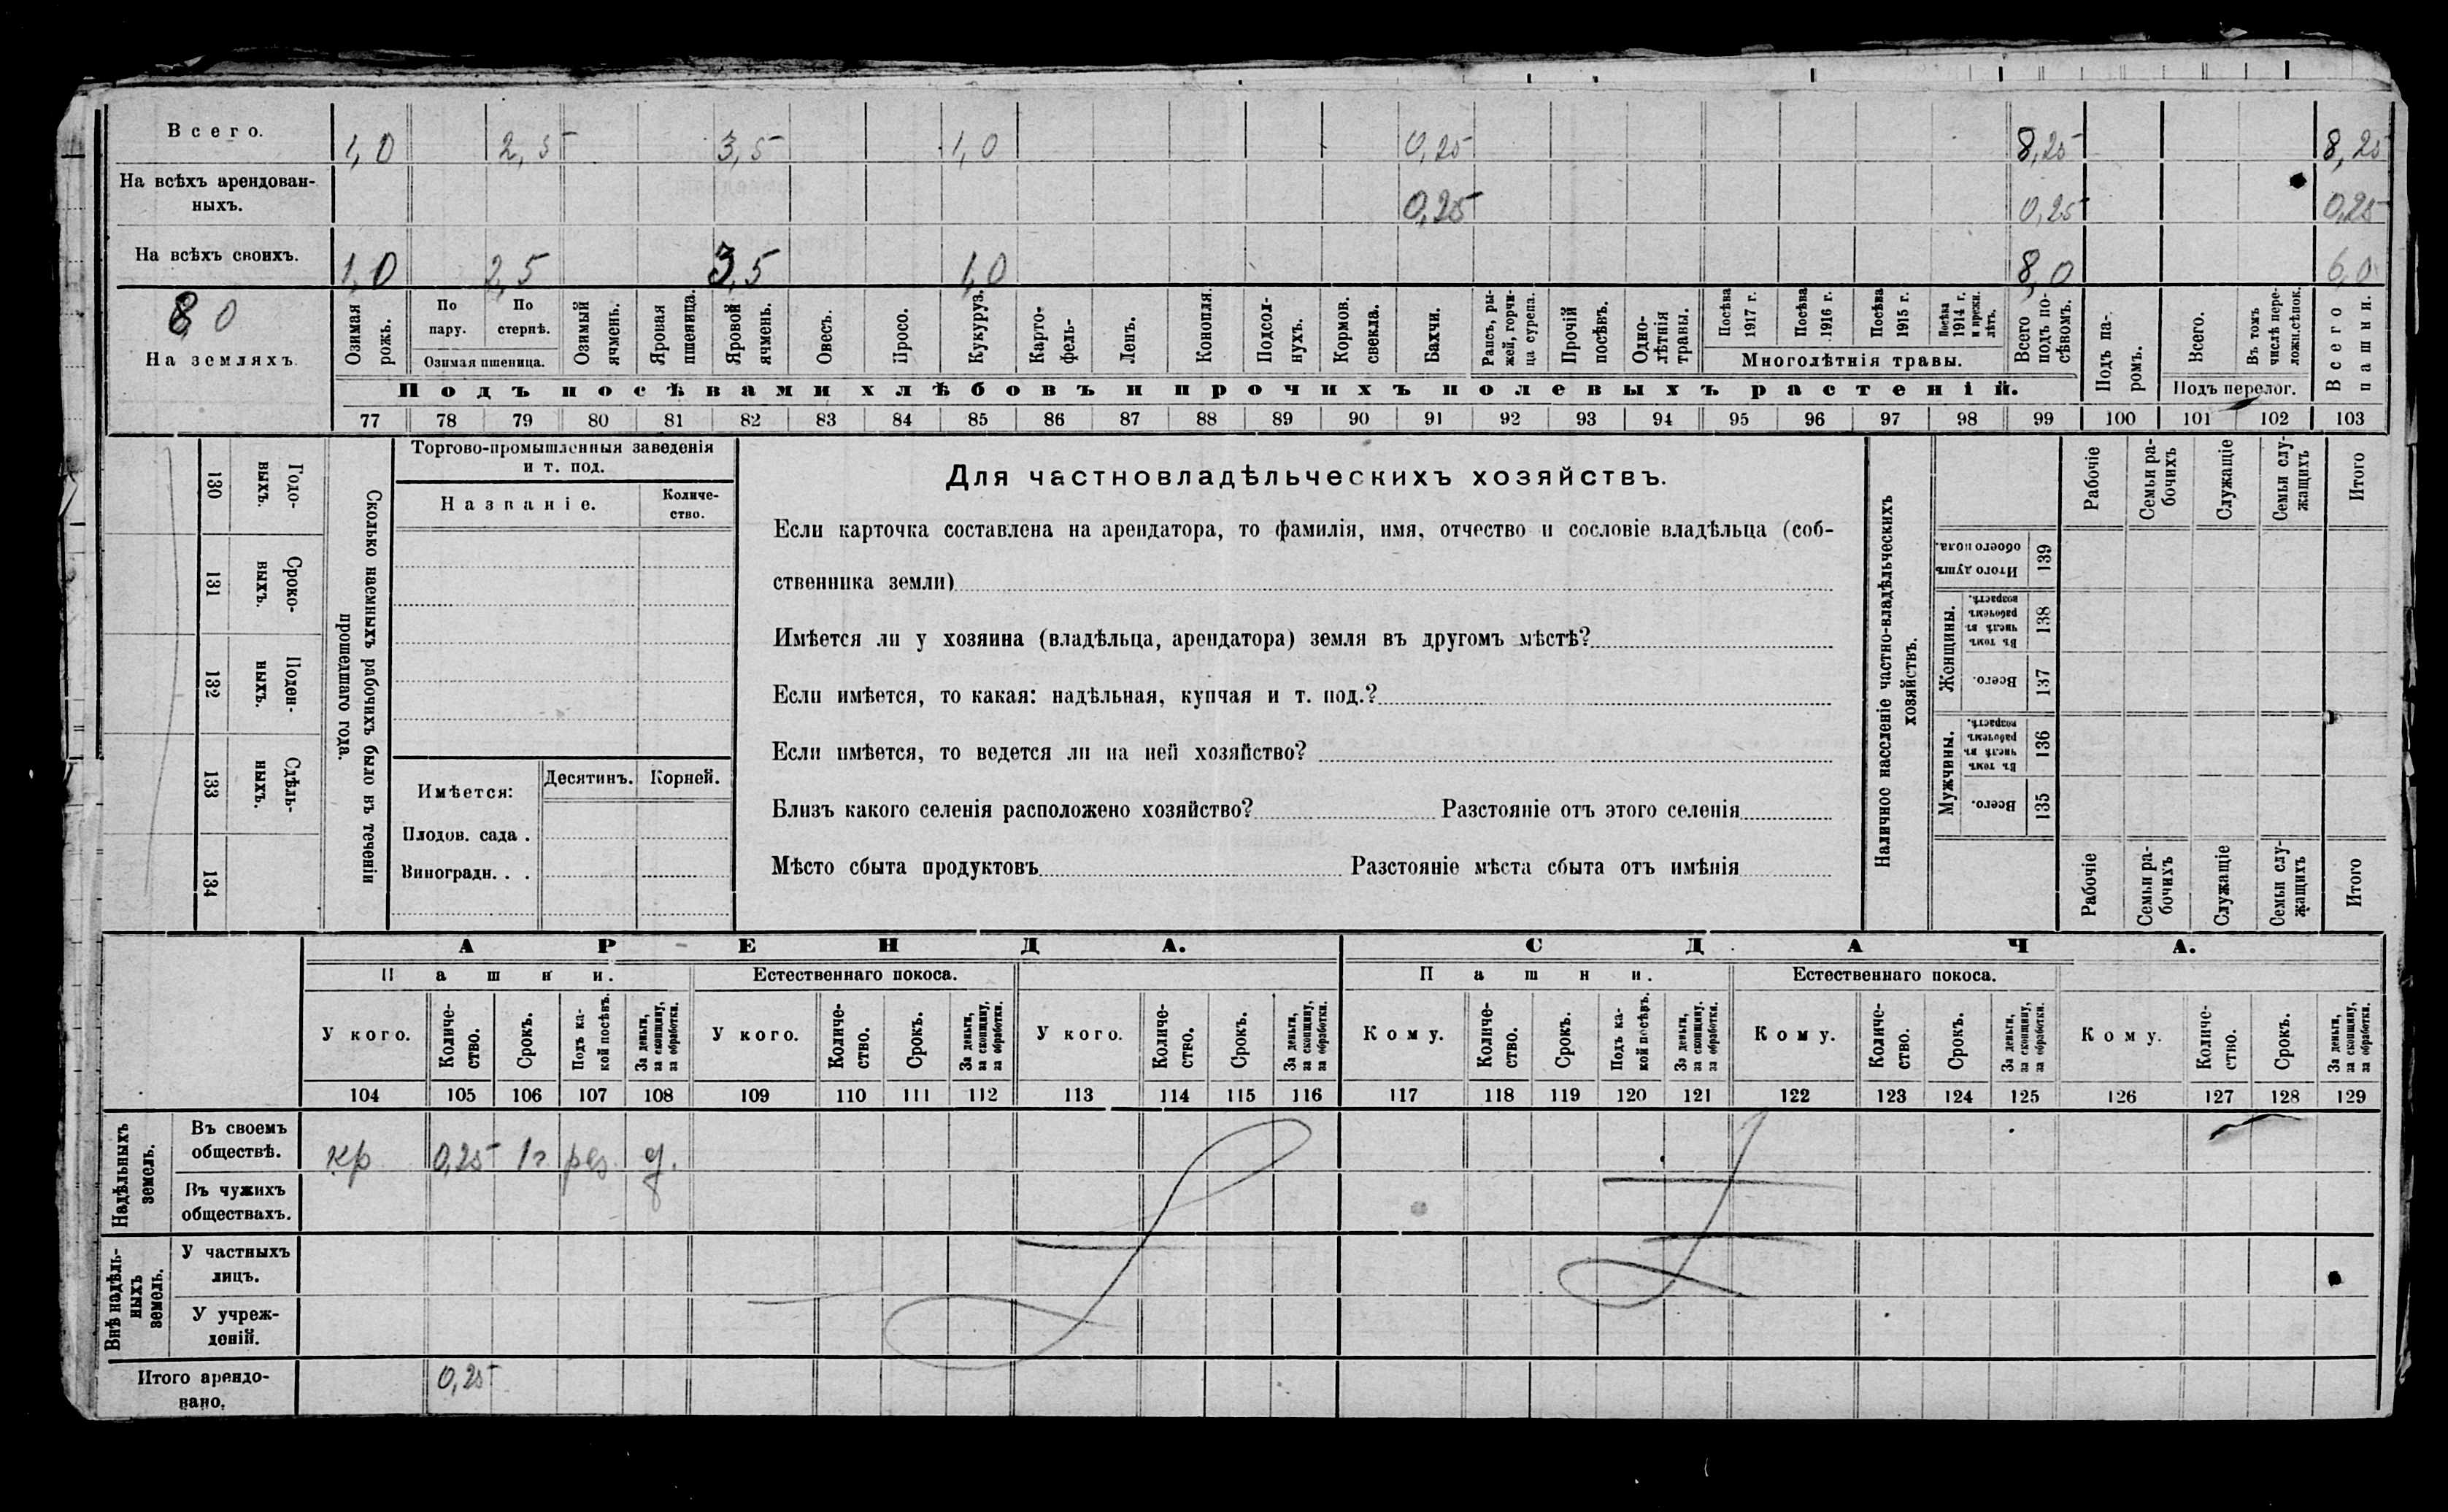 Всего. 1,0 2,5 3,5 1,0 0,25 8,25 8,25
На всѣхъ арендован-
ныхъ. 0,25 0,25 0,25
На всѣхъ своихъ. 1,0 2,5 3,5 1,0 8,0
8,0
На земляхъ.
Озимая рожь.
По пару.
По стернѣ.
Озимая пшеница.
Озимый ячмень.
Яровая пшеница.
Яровой ячмень.
Овесъ.
Просо.
Кукуруз.
Карто-
фель-
Ленъ.
Конопля.
Подсол-
нухъ.
Кормов.
свекла.
Бахчи.
Рапсъ, ры-
жей, горчи-
ца сурепа.
Прочій
посѣвъ.
Одно-
лѣтнія
травы.
Посѣва
1917 г.
Посѣва
1916 г.
Посѣва
1915 г.
Посѣва
1914 г.
и прежн.
лѣтъ.
Многолѣтнія травы.
Всего
подъ по-
сѣвомъ.
Подъ па-
ромъ.
Всего.
Въ томъ
числѣ пере-
ложн.сѣнок.
Подъ перелог.
Всего
пашни.
Подъ посѣвами хлѣбовъ и прочихъ полевыхъ растеній.
77 78 79 80 81 82 83 84 85 86 87 88 89 90 91 92 93 94 95 96 97 98 99 100 101 102 103
130 Годо-
выхъ.
131 Сроко-
выхъ.
132 Поден-
ныхъ.
133 Сдѣль-
ныхъ.
134
Сколько наемныхъ рабочихъ было въ теченіи
прошедшаго года.
Торгово-промышленныя заведенія
и т. под.
Названіе.
Количе-
ство.
Имѣется:
Десятинъ. Корней.
Плодов. сада .
Виноградн. . .
Для частновладѣльческихъ хозяйствъ.
Если карточка составлена на арендатора, то фамилія, имя, отчество и сословіе владѣльца (соб-
ственника земли)
Имѣется ли у хозяина (владѣльца, арендатора) земля въ другомъ мѣстѣ?
Если имѣется, то какая: надѣльная, купчая и т. под.?
Если имѣется, то ведется ли на ней хозяйство?
Близъ какого селенія расположено хозяйство? Разстояніе отъ этого селенія
Мѣсто сбыта продуктовъ Разстояніе мѣста сбыта отъ имѣнія
Наличное населеніе частно-владѣльческихъ
хозяйствъ.
Рабочіе
Семьи ра-
бочихъ
Служащіе
Семьи слу-
жащихъ
Итого
Итого душъ
обоего пола.
139
Женщины.
Въ томъ
числѣ въ
рабочемъ
возрастѣ.
138
Всего.
137
Мужчины.
Въ томъ
числѣ въ
рабочемъ
возрастѣ.
136
Всего.
135
Рабочіе
Семьи ра-
бочихъ
Служащіе
Семьи слу-
жащихъ
Итого
АРЕНДА. СДАЧА.
Пашни. Естественнаго покоса. Пашни. Естественнаго покоса.
У кого.
Количе-
ство.
Срокъ.
Подъ ка-
кой посѣвъ.
За деньги,
за скопщину,
за обработки.
У кого.
Количе-
ство.
Срокъ.
За деньги,
за скопщину,
за обработки.
У кого.
Количе-
ство.
Срокъ.
За деньги,
за скопщину,
за обработки.
Кому.
Количе-
ство.
Срокъ.
Подъ ка-
кой посѣвъ.
За деньги,
за скопщину,
за обработки.
Кому.
Количе-
ство.
Срокъ.
За деньги,
за скопщину,
за обработки.
Кому.
Количе-
ство.
Срокъ.
За деньги,
за скопщину,
за обработки.
104 105 106 107 108 109 110 111 112 113 114 115 116 117 118 119 120 121 122 123 124 125 126 127 128 129
Надѣльныхъ
земель.
Въ своемъ
обществѣ. кр 0,25 1г д.
Въ чужихъ
обществахъ.
Внѣ надѣль-
ныхъ
земель.
У частныхъ
лицъ.
У учреж-
деній.
Итого арендо-
вано. 0,25